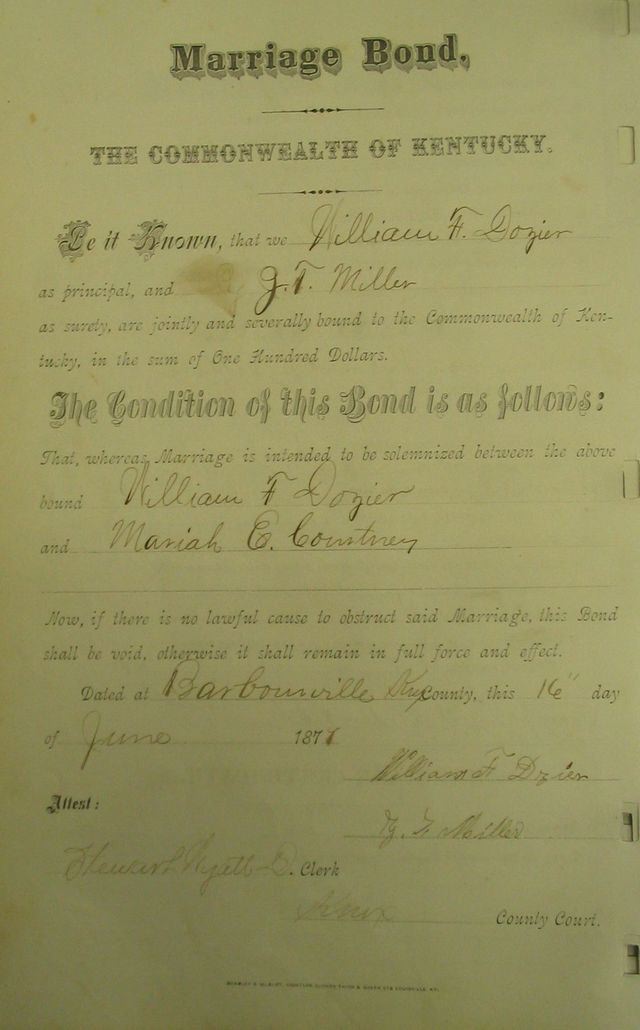 Marriage Bond,
THE COMMONWEALTH OF KENTUCKY.
Be it Known, that we William F. Dozier
as principal, and J. T. Miller
as surety, are jointly and severally bound to the Commonwealth of Ken-
tucky, in the sum of One Hundred Dollars.
The Condition of this Bond is as follows:
That, whereas Marriage is intended to be solemnized between the above
bound William F Dozier
and Mariah E. Courtney
Now, if there is no lawful cause to obstruct said Marriage, this Bond
shall be void, otherwise it shall remain in full force and effect.
Dated at Barbourville Ky County, this 16" day
of June 1871
William F Dzier
Attest:
Miller
Wyatt D. Clerk
Knox County Court.